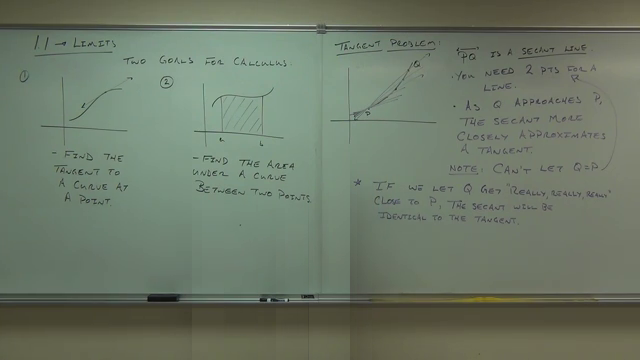 1.1 → LIMITS
TWO GOALS FOR CALCULUS.
①
②
- FIND THE
TANGENT TO
A CURVE AT
A POINT.
- FIND THE AREA
UNDER A CURVE
BETWEEN TWO POINTS.
TANGENT PROBLEM:
Q
P
PQ IS A SECANT LINE.
· YOU NEED 2 PTS FOR A
LINE.
· AS Q APPROACHES P,
THE SECANT MORE
CLOSELY APPROXIMATES
A TANGENT.
NOTE: CAN'T LET Q=P
* IF WE LET Q GET "REALLY, REALLY, REALLY"
CLOSE TO P, THE SECANT WILL BE
IDENTICAL TO THE TANGENT.